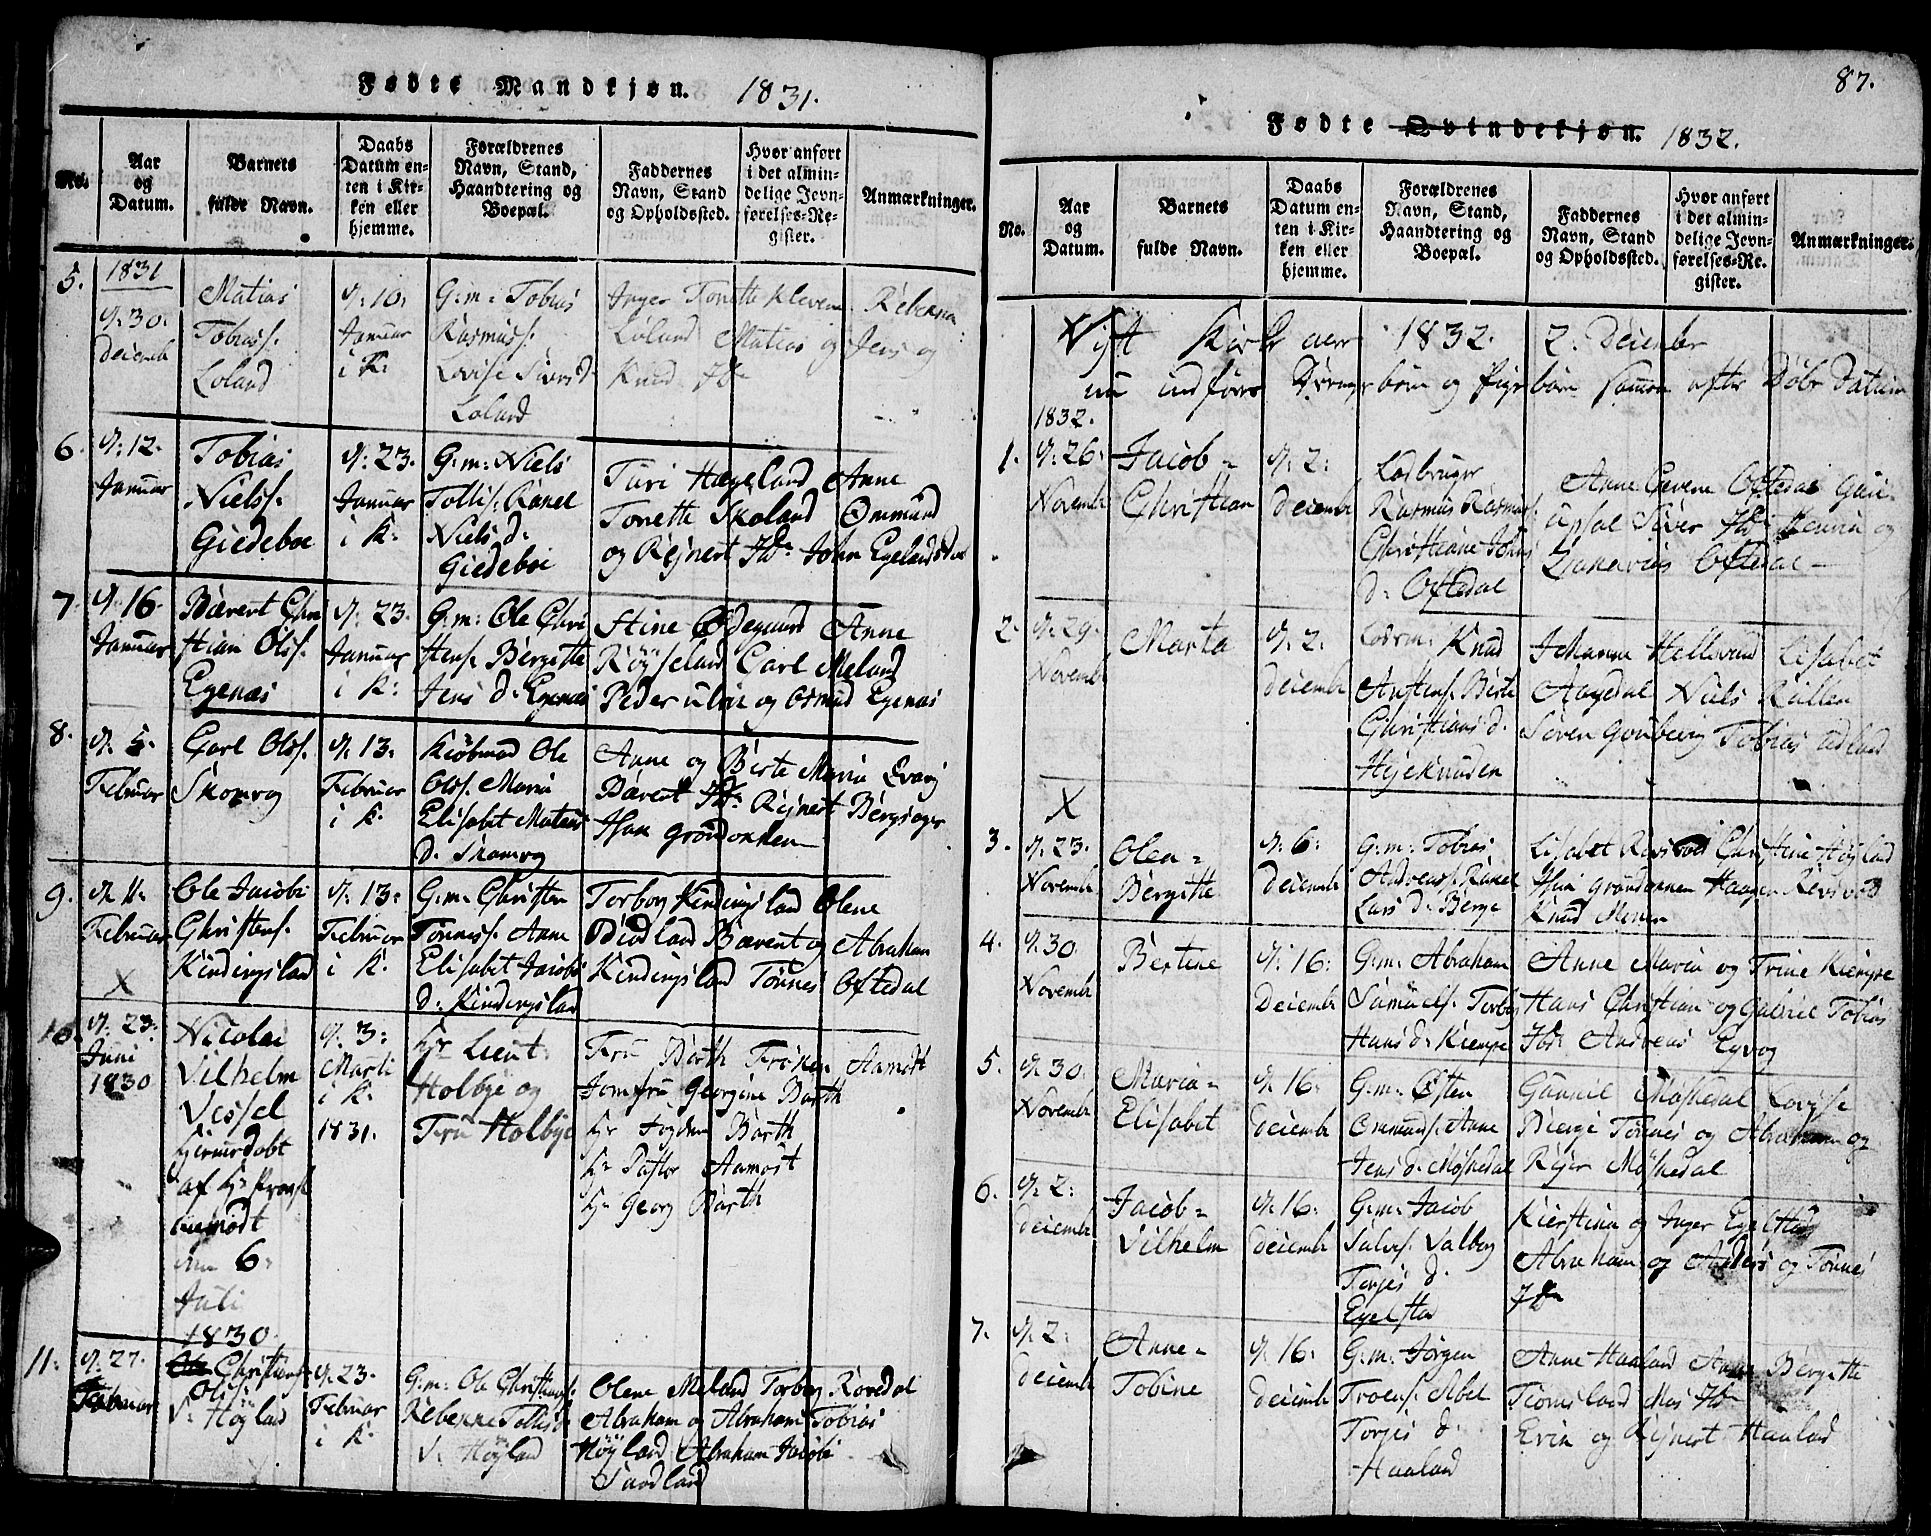 Fødte Mandkjøn. 1831.
No.
Aar
og
Datum.
Barnets
fulde Navn.
Daabs
Datum en-
ten i Kir-
ken eller
hjemme.
Forældrenes
Navn, Stand,
Haandtering og
Boepæl.
Faddernes
Navn, Stand
og Opholdssted.
Hvor anført
i det almin-
delige Jevn-
førelses-Re-
gister.
Anmærkninger.
5.
1831
d. 30.
Deiemb
Matias
Tobiass.
Loland
d. 10.
Januar
i K.
G:m: Tobias
Rasmuss.
Lovise Sivers d.
Loland
Inger Tonette Kleven Rebekka
Loland Matias og Jens og
Knud
6.
d. 12.
Januar
Tobias
Nielss.
Giedeboe
d. 23.
Januar
i K.
G:m: Niels
Tollis. Ranel
Niels d.
Giedeboe
Turi Hægeland Anne
Tonette Skoland Ommund
og Rejnert John Egelandsdal
7.
d. 16
Januar
Bærent Chri
stian Olss.
Egenæs
d. 23.
Januar
i K.
G:m: Ole Chri
stens. Bergitte
Jens d. Egenæs
Stine Ødegaard Anne
Røysland Carl Meland
Peder og Osmund Egenæs
8.
d. 5.
Februar
Carl Olss.
Skomrog
d. 13.
Februar
i K.
Kiøbmand Ole
Olss. Maria
Elisabet Matias
d. Skomrog
Anne og Birte Maria
Bærent Rejnert Bergsager
Grondokken
9.
d. 11.
Februar
X
Ole Jacob
Christens.
Kindingsland
d. 13.
Februar
i K.
G:m: Christen
Tønness. Anne
Elisabet Jacobs
d. Kindingsland
Torborg Kindingsland Olene
Bærent og Abraham
Kindingsland Tønnes Oftedal
10.
d. 23.
Juni
1830
Nicolai
Vilhelm
Vessel
hjemmedøbt
af Hr Provst
Aamodt
den 6.
Juli
1830.
d. 3.
Marti
i K.
1831.
Hr Lieut.
Holbye og
Fru Holbye
Fru Barth Frøken Aamodt
Jomfru Georgine Barth
Hr Barth
Hr Pastor Aamodt
Hr Georg Barth
11.
d. 27.
Februar
Christian
Olss.
Høyland
d. 23.
Februar
i K.
G:m: Ole Christians.
Rebekka Tollis
d. Høyland
Olene Meland Torborg Røredal
Abraham og Abraham Tobias
Høyland Abraham Jacob
87.
Fødte Qvindekjøn. 1832.
No.
Aar
og
Datum.
Barnets
fulde Navn.
Daabs
Datum en-
ten i Kir-
ken eller
hjemme.
Forældrenes
Navn, Stand,
Haandtering og
Boepæl.
Faddernes
Navn, Stand
og Opholdssted.
Hvor anført
i det almin-
delige Jevn-
førelses-Re-
gister.
Anmærkninger.
Nyt Kirke aar 1832. 2. Deiember
nu indføres Drengebørn og Pigebørn sammen efter Døbe Datum
1832.
1.
d. 26.
Novembr
Jacob
Christian
d. 2.
Deiembr
Rasmus Rasmus.
Christiane Johns
d. Oftedal
Anne Oftedal
Siver og
Zakarias Oftedal
2.
d. 29.
Novembr
Marta
d. 2.
Deiembr
Knud
Anstens. Birte
Christians d.
Hejeknuden
Johanna Lisabet
Aagedal Niels
Søren Tobias
X
3.
d. 23.
Novembr
Olen
Bergitte
d. 6.
Deiembr
G:m: Tobias
Andreass. Ranel
Lars d. Berge
Lisabet Christine Høyland
Haagen
Knud
4.
d. 30.
Novembr
Bertine
d. 16.
Deiembr
G:m: Abraham
Samuels. Torborg
Hans d. Kiempe
Anne Maria og Trine Kiempe
Hans Christian og Gabriel Tobias
Andreas Eyvog
5.
d. 30.
Novembr
Maria
Elisabet
d. 16.
Deiembr
G:m: Østen
Ommunds. Anne
Jens d. Møskedal
Gunnil Møskedal Lovise
Bierge Tønnes og Abraham og
Rejer Møskedal
6.
d. 2.
Deiembr
Jacob
Vilhelm
d. 16.
Deiembr
G:m: Jacob
Salves. Valborg
Terjes d.
Egelstad
Kierstina og Inger Egelstad
Abraham og Anders og Tønnes
7.
d. 2.
Deiembr
Anne
Tobine
d. 16.
Deiembr
G:m: Jørgen
Troens. Abel
Torjes d.
Haaland
Anne Haaland Anne Bergitte
Evin og Rejnert Haaland